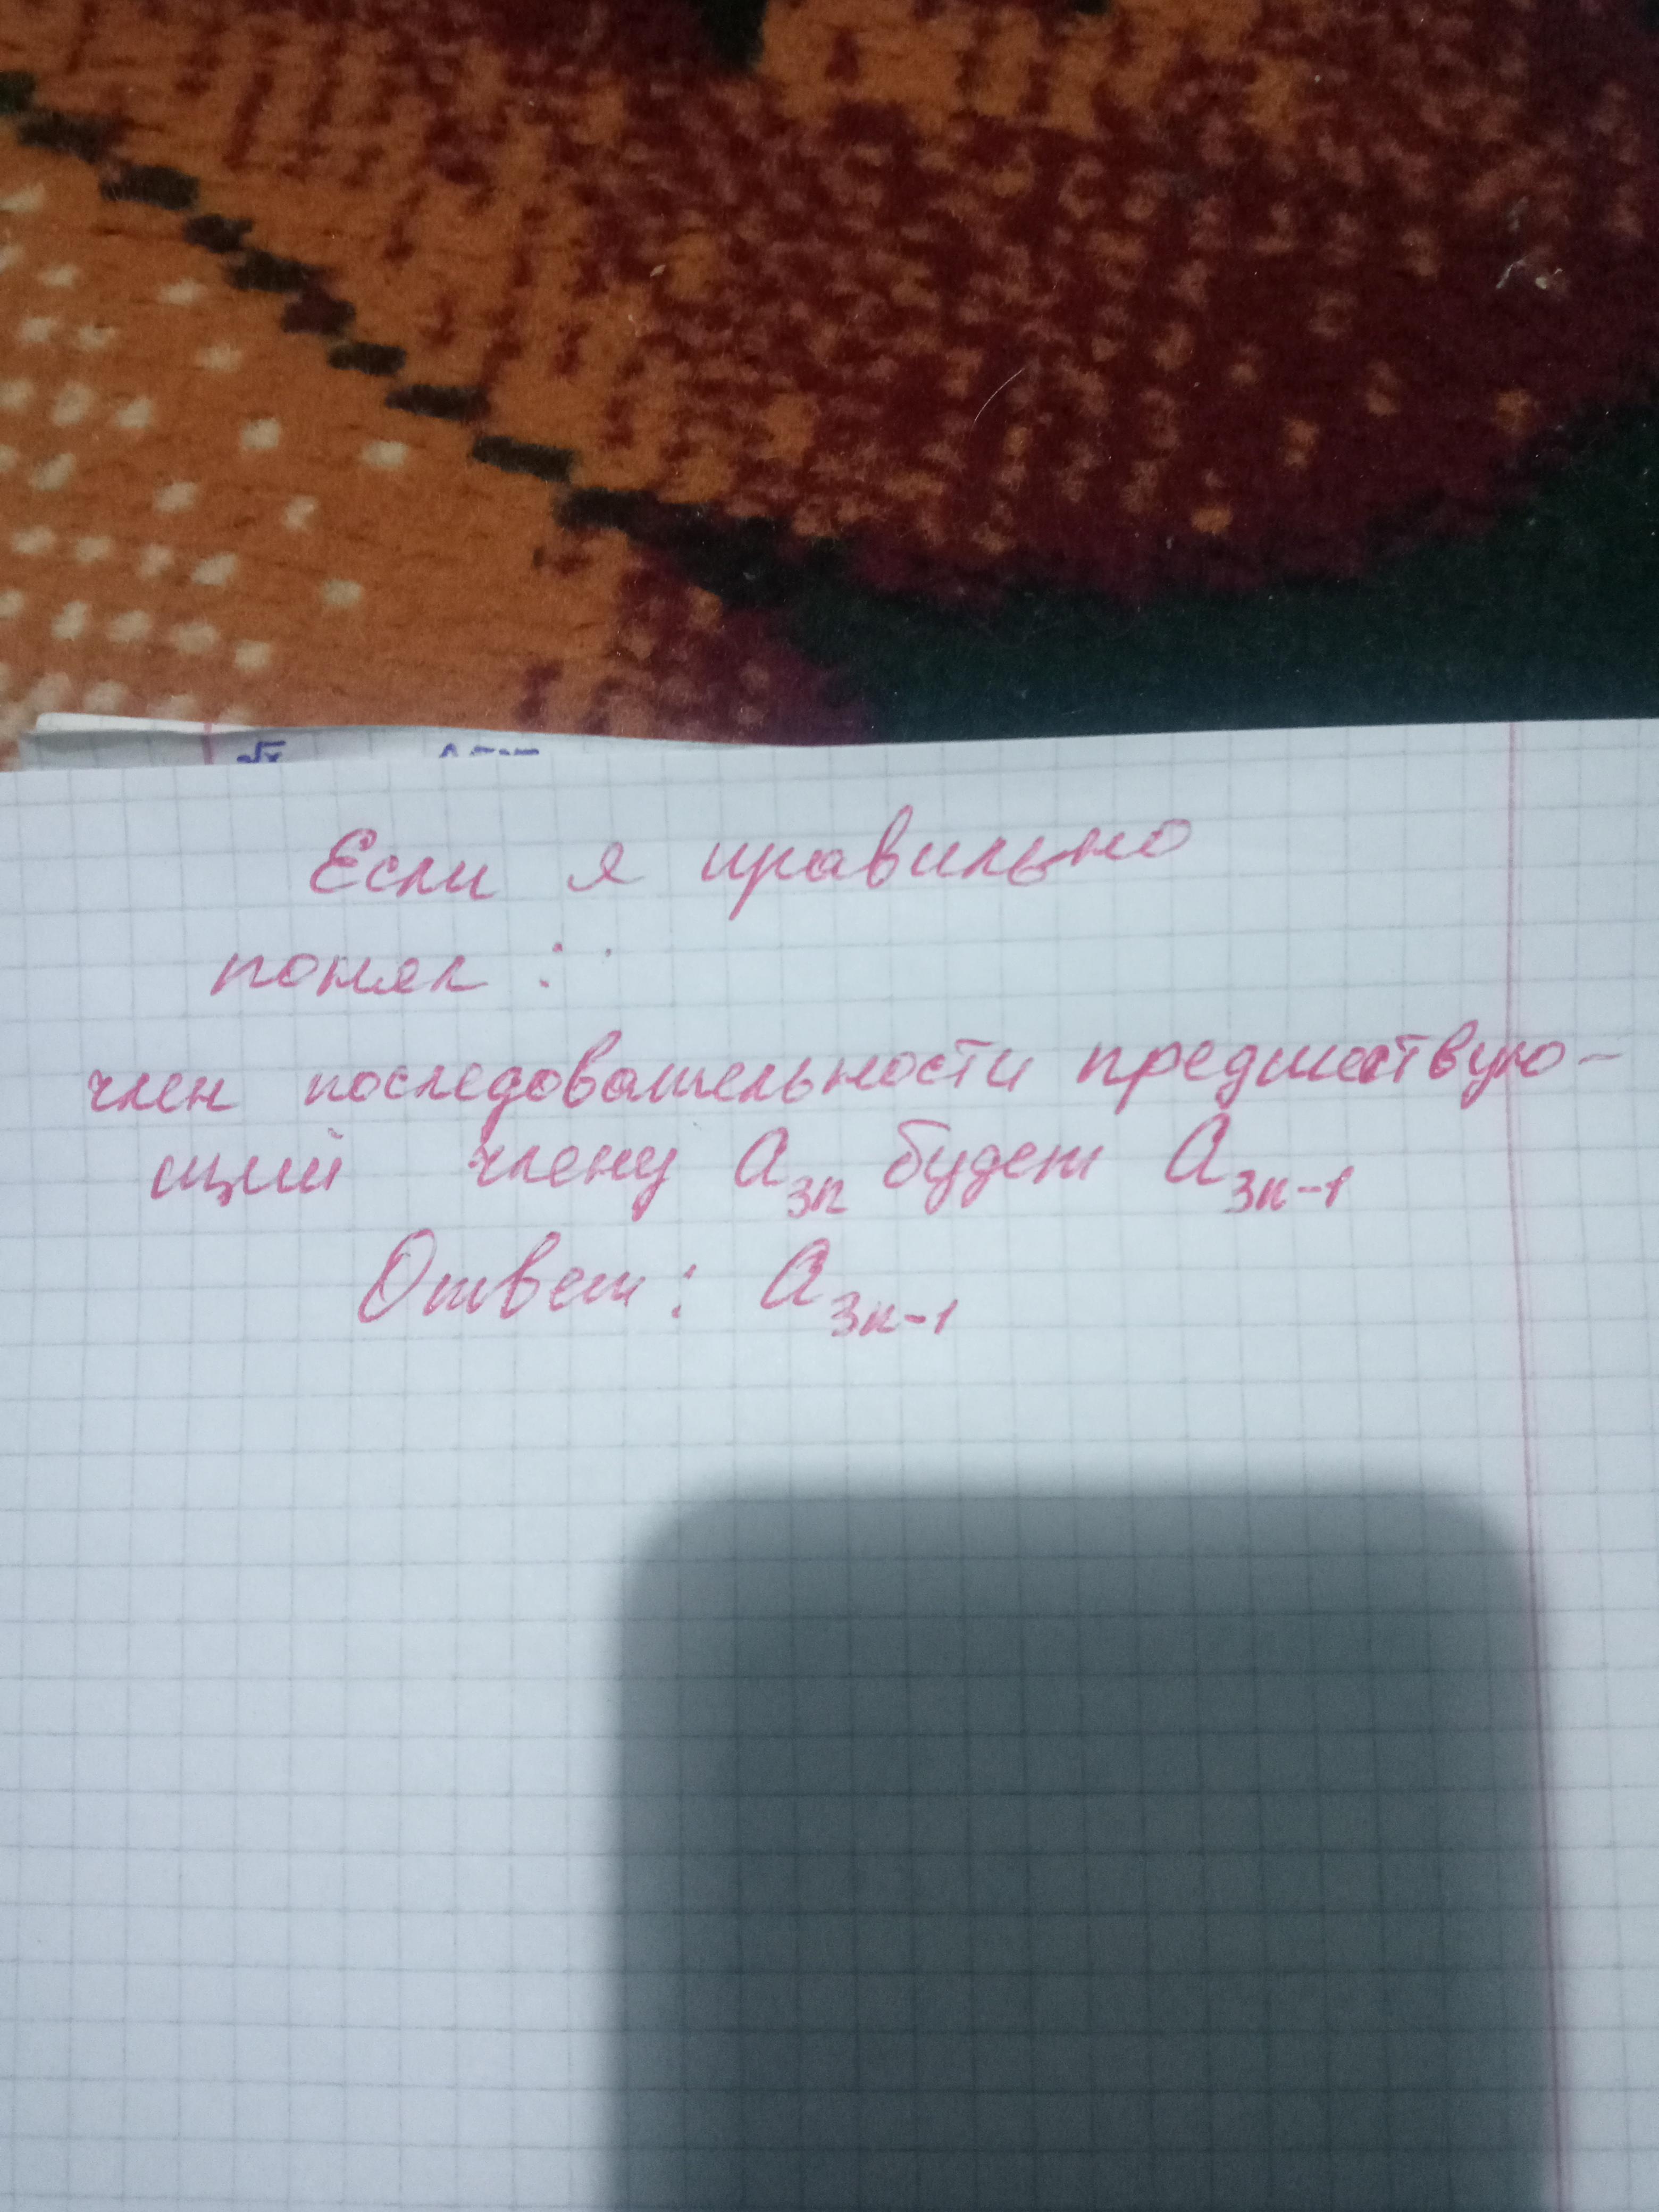 Если я правильно
понял:
член последовательности предшествую-
щий члену a₃ₙ будет a₃ₙ₋₁
Ответ: a₃ₙ₋₁